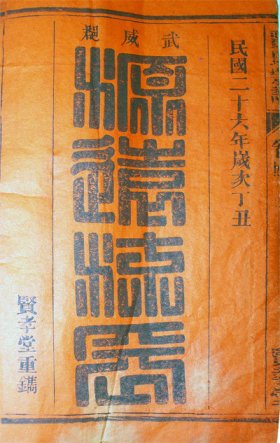 民國二十六年歲次丁丑
武威
源遠流長
賢孝堂重鐫